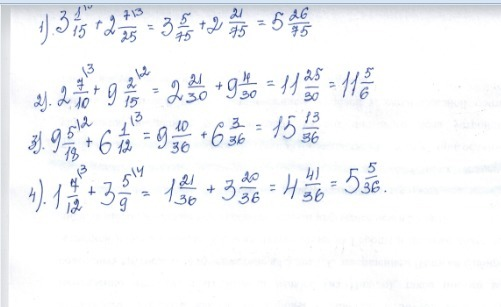 1). 3 1/15 \5 + 2 7/25 \3 = 3 5/75 + 2 21/75 = 5 26/75
2). 2 7/10 \3 + 9 2/15 \2 = 2 21/30 + 9 4/30 = 11 25/30 = 11 5/6
3). 9 5/18 \2 + 6 1/12 \3 = 9 10/36 + 6 3/36 = 15 13/36
4). 1 7/12 \3 + 3 5/9 \4 = 1 21/36 + 3 20/36 = 4 41/36 = 5 5/36.